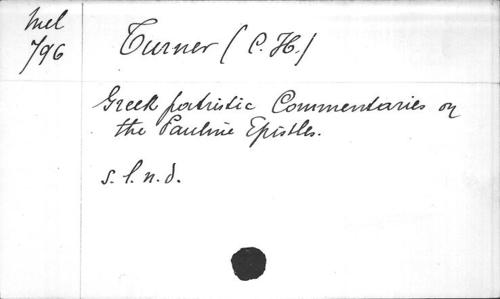 Mel
796
Turner (C. H.)
Greek patristic Commentaries on
the Pauline Epistles.
s. l. n. d.